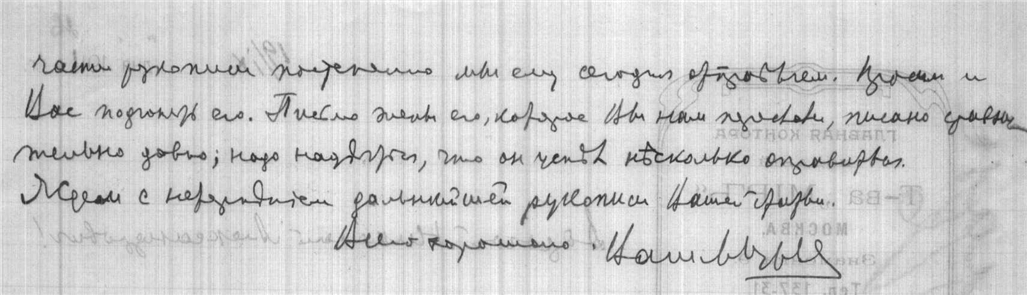 части рукописи постепенно мы ему сегодня отправляем. Просим и
Вас подогнать его. Письмо жены его, которое Вы нам прислали, писано сравни-
тельно давно; надо надеяться, что он успел нѣсколько оправиться.
Ждем с нетерпѣнием дальнѣйшей рукописи Вашей
Всего хорошаго. Ваш
ГЛАВНАЯ КОНТОРА
Т-ва МИРЪ
МОСКВА
Знаменка
Тел. 137-31